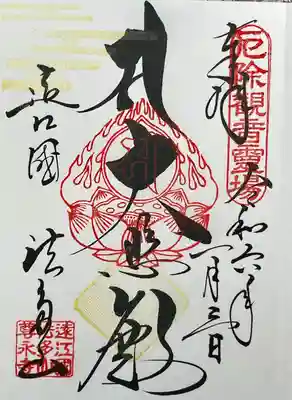 厄除観音靈場
奉拝
令和六年
一月三日
大悲殿
遠江國
法多山
遠江國
法多山
尊永寺